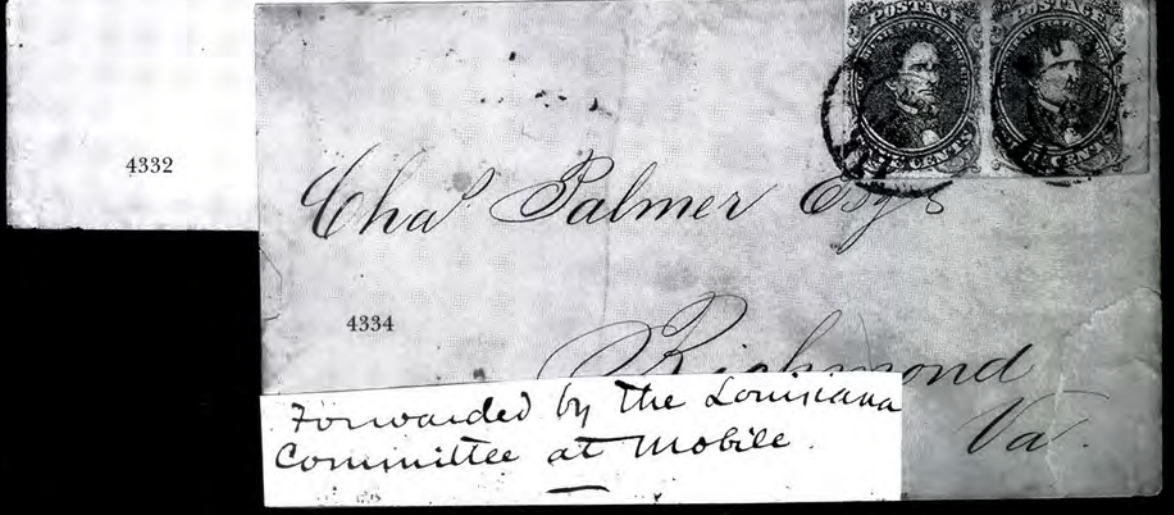 4332
POSTAGE
POSTAGE
CENTS
CENTS
Chas Palmer Esqr
4334
Richmond
Va.
Forwarded by the Louisiana
Committee at Mobile.